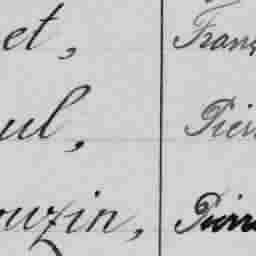 et, Franç
ul, Pierr
ouzin, Pierre